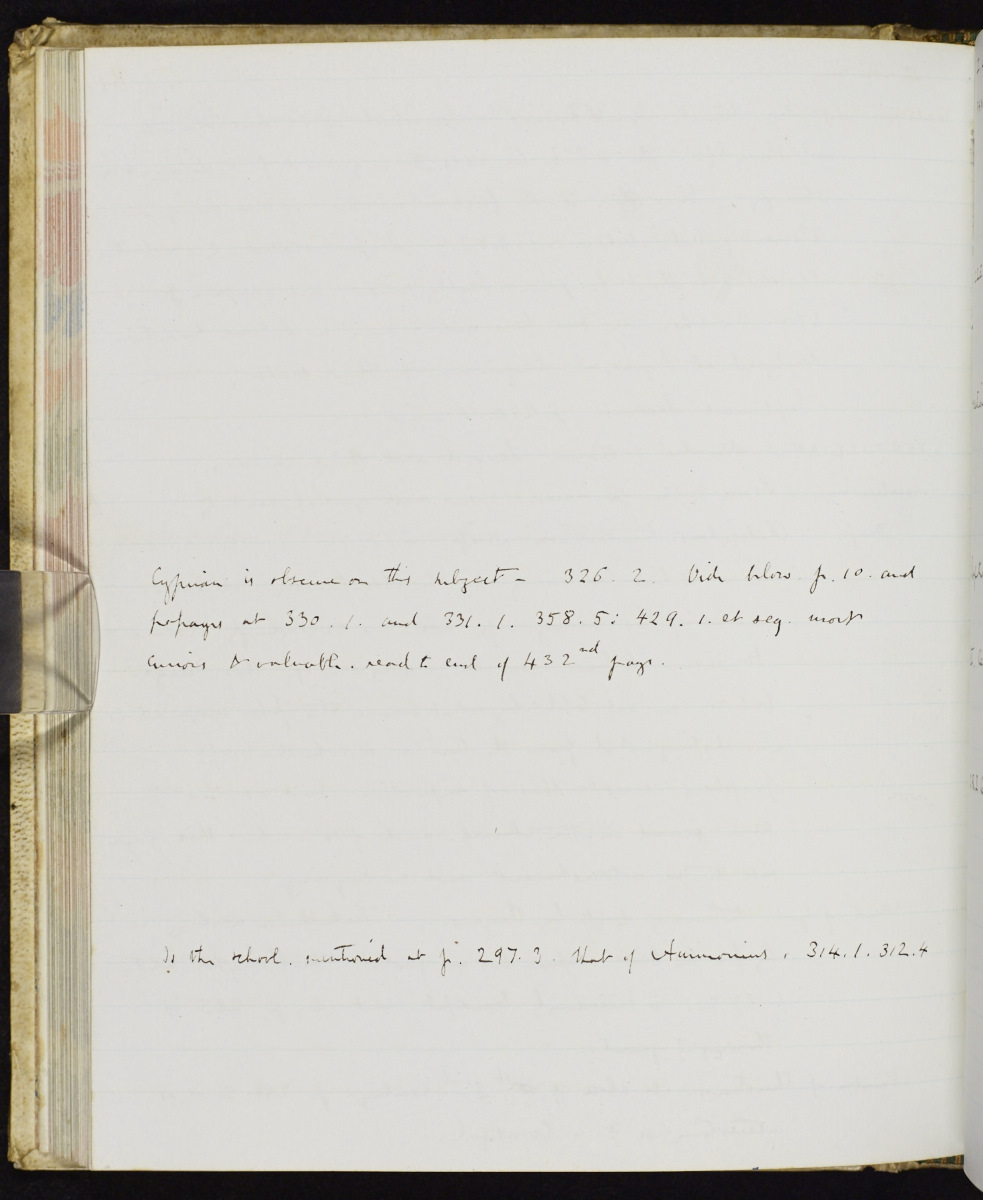 Cyprian is obscure on this subject - 326. 2. Vide below p. 10. and
at 330. 1. and 331. 1. 358. 5: 429. 1. et seq. most
curious & valuable. read to end of 432nd page.
Is the school. mentioned at p. 297. 3. that of Ammonius. 314. 1. 312. 4